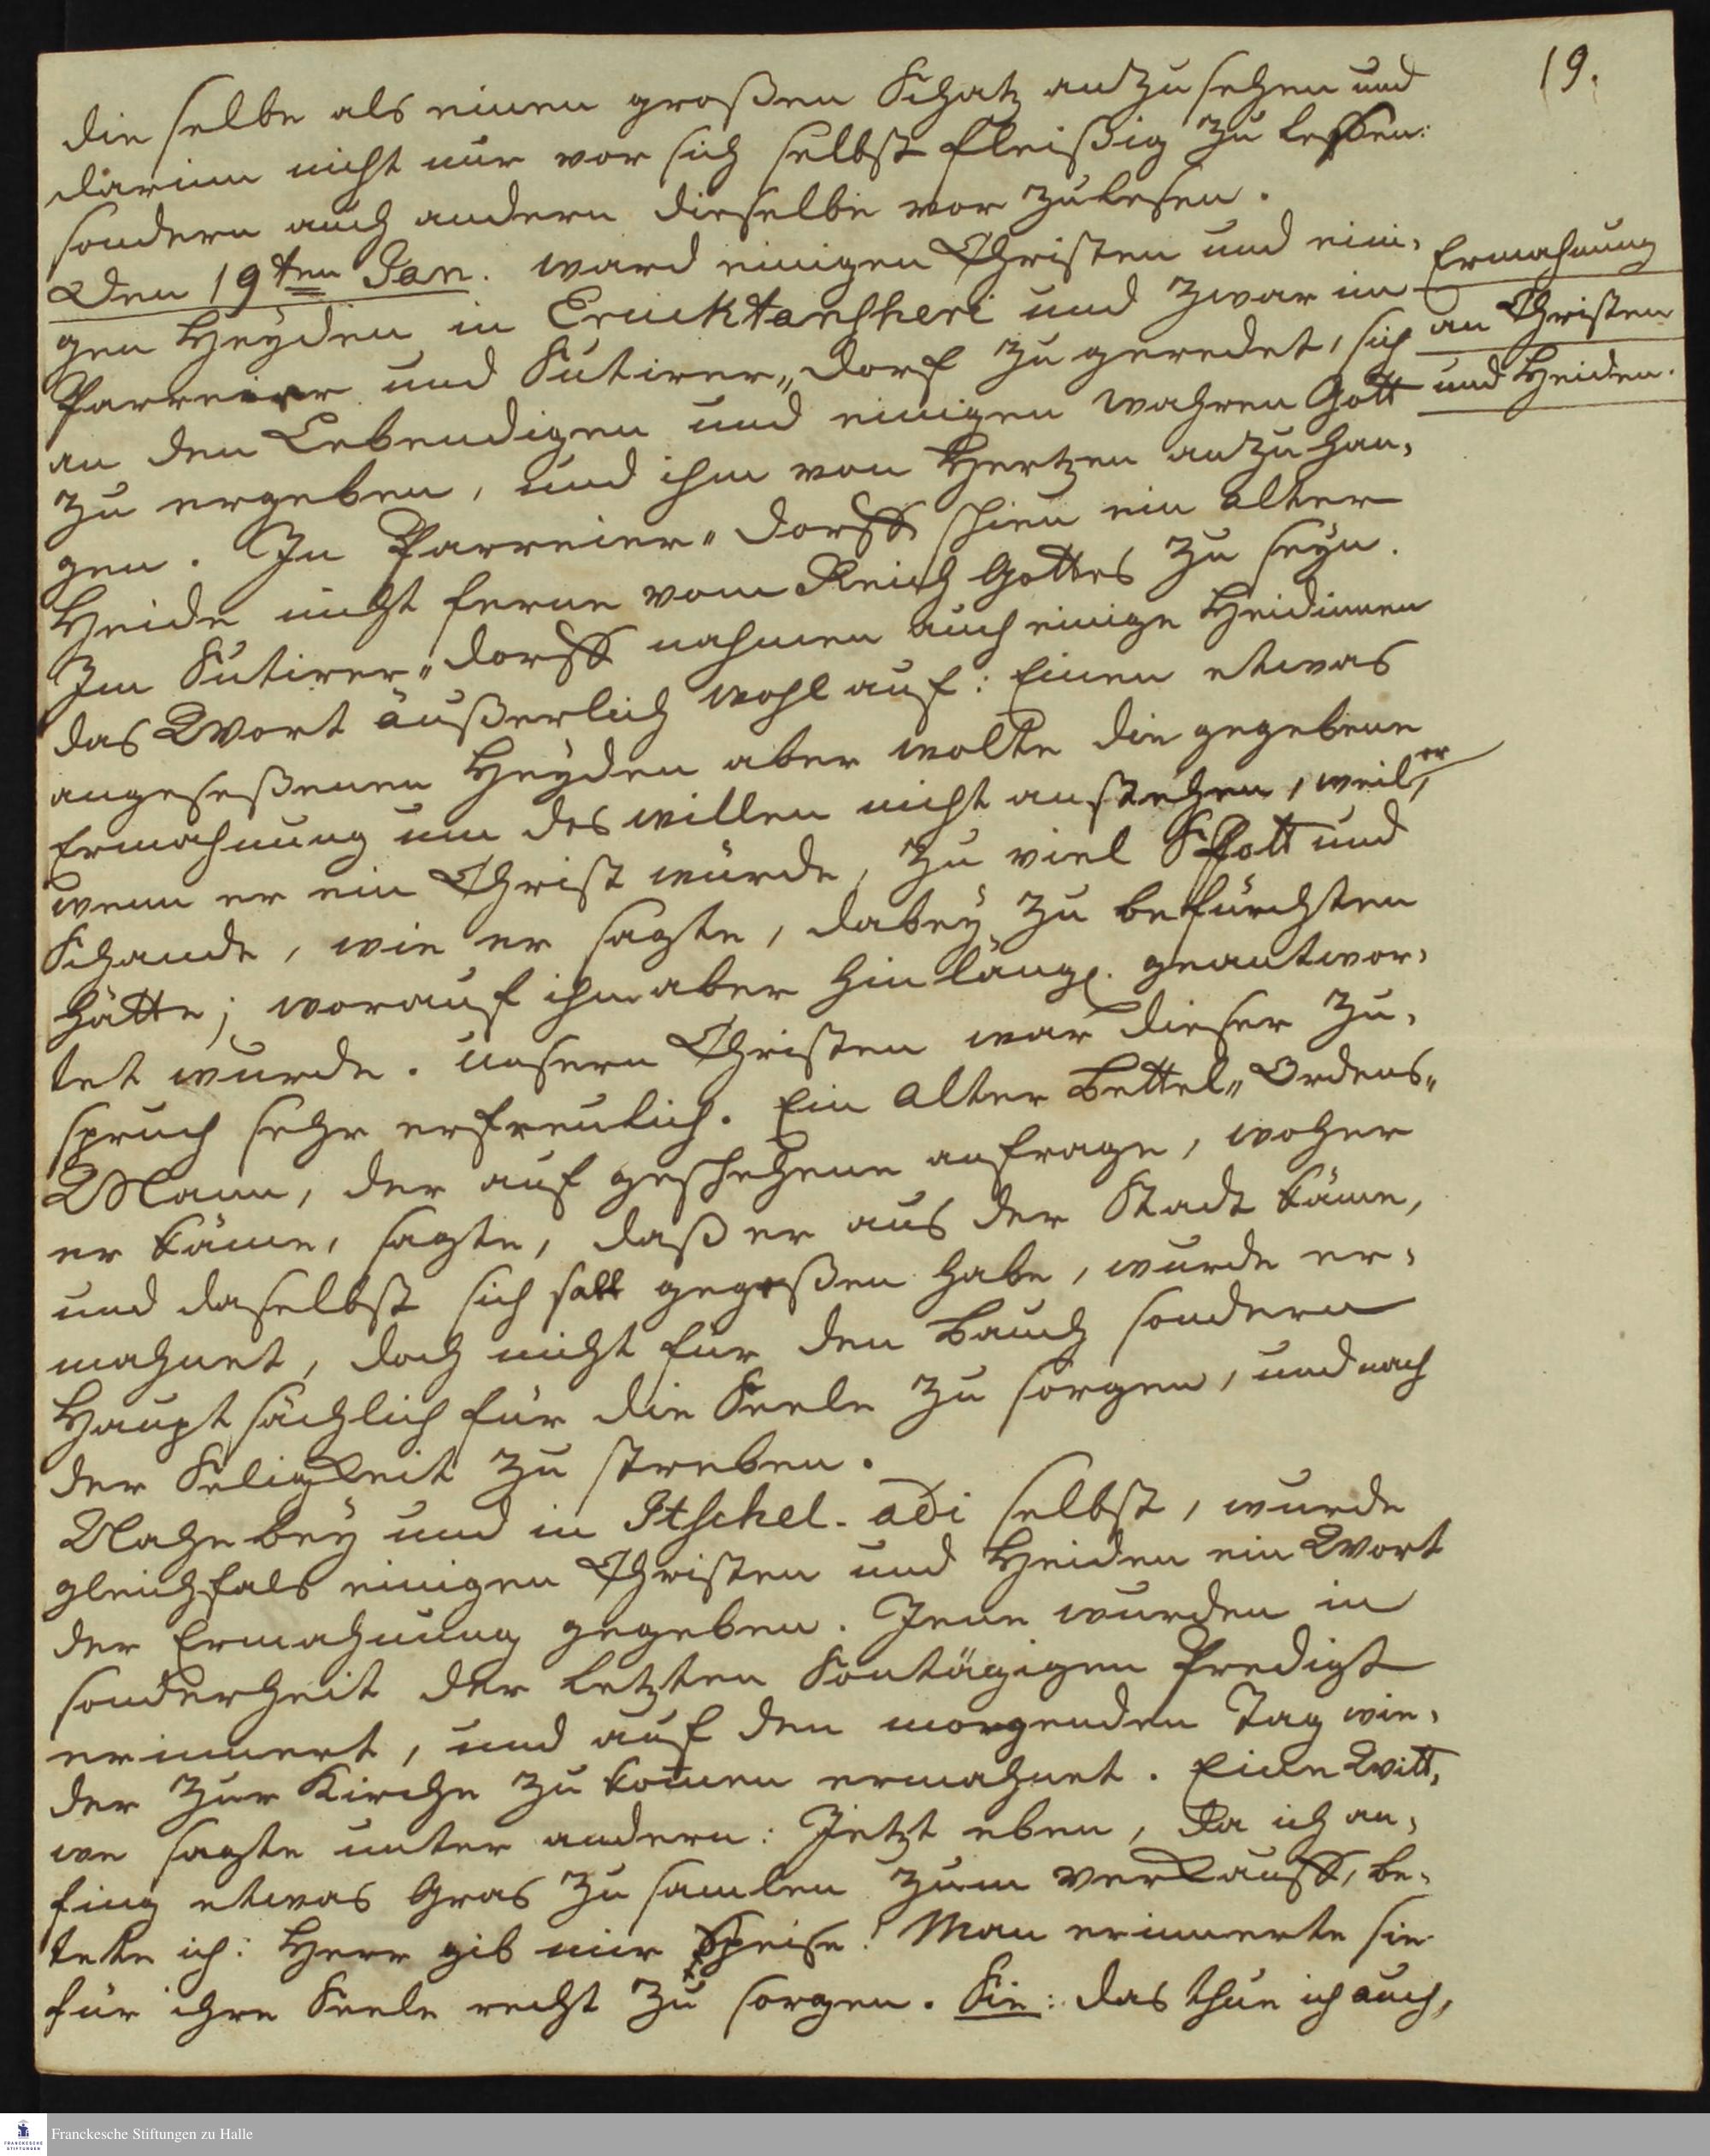 19.
die selbe als einen großen Schatz anzusehen und
darinn nicht nur vor sich selbst fleißig zu lesen:
sondern auch andern dieselbe vor zulesen.
Den 19ten Jan. ward einigen Christen und eini-
gen Heyden in Eruicktanscheri und zwar im
Parreier und Sutirer„dorf zu geredet, sich
an den Lebendigen und einigen wahren Gott
zu ergeben, und ihm von Hertzen anzuhan-
gen. In Parreier„dorff schien ein alter
Heide nicht ferne vom Reich Gottes zu seyn.
Im Sutirer„dorff nahmen auch einige Heidinnen
das Wort äußerlich wohl auf: Einem etwas
angeseßenen Heyden aber wolte die gegebene
Ermahnung um des willen nicht anstehen, weil er,
wenn er ein Christ würde, zu viel Spott und
Schande, wie er sagte, dabey zu befürchten
hätte; worauf ihm aber hinlängl. geantwor-
tet wurde. Unsern Christen war dieser Zu-
spruch sehr erfreulich. Ein alter Bettel„Ordens„
Mann, der auf geschehene anfrage, woher
er käme, sagte, daß er aus der Stadt käme,
und daselbst sich satt gegeßen habe, wurde er-
mahnet, doch nicht für den Bauch sondern
Hauptsächlich für die Seele zu sorgen, und nach
der Seligkeit zu streben.
Nahe bey und in Itschel-adi selbst, wurde
gleichfals einigen Christen und Heiden ein Wort
der Ermahnung gegeben. Jene wurden in
sonderheit der letzten Sontägigen Predigt
erinnert, und auf den morgenden Tag wie-
der zur Kirche zu kom̅en ermahnet. Eine Witt-
we sagte unter andern: Jetzt eben, da ich an-
fing etwas Gras zu samlen zum verkauff, be-
tete ich: Herr gib mir Speise! Man erinnerte sie
für ihre Seele recht zu sorgen. Sie: das thue ich auch,
Ermahnung
an Christen
und Heiden.
Franckesche Stiftungen zu Halle